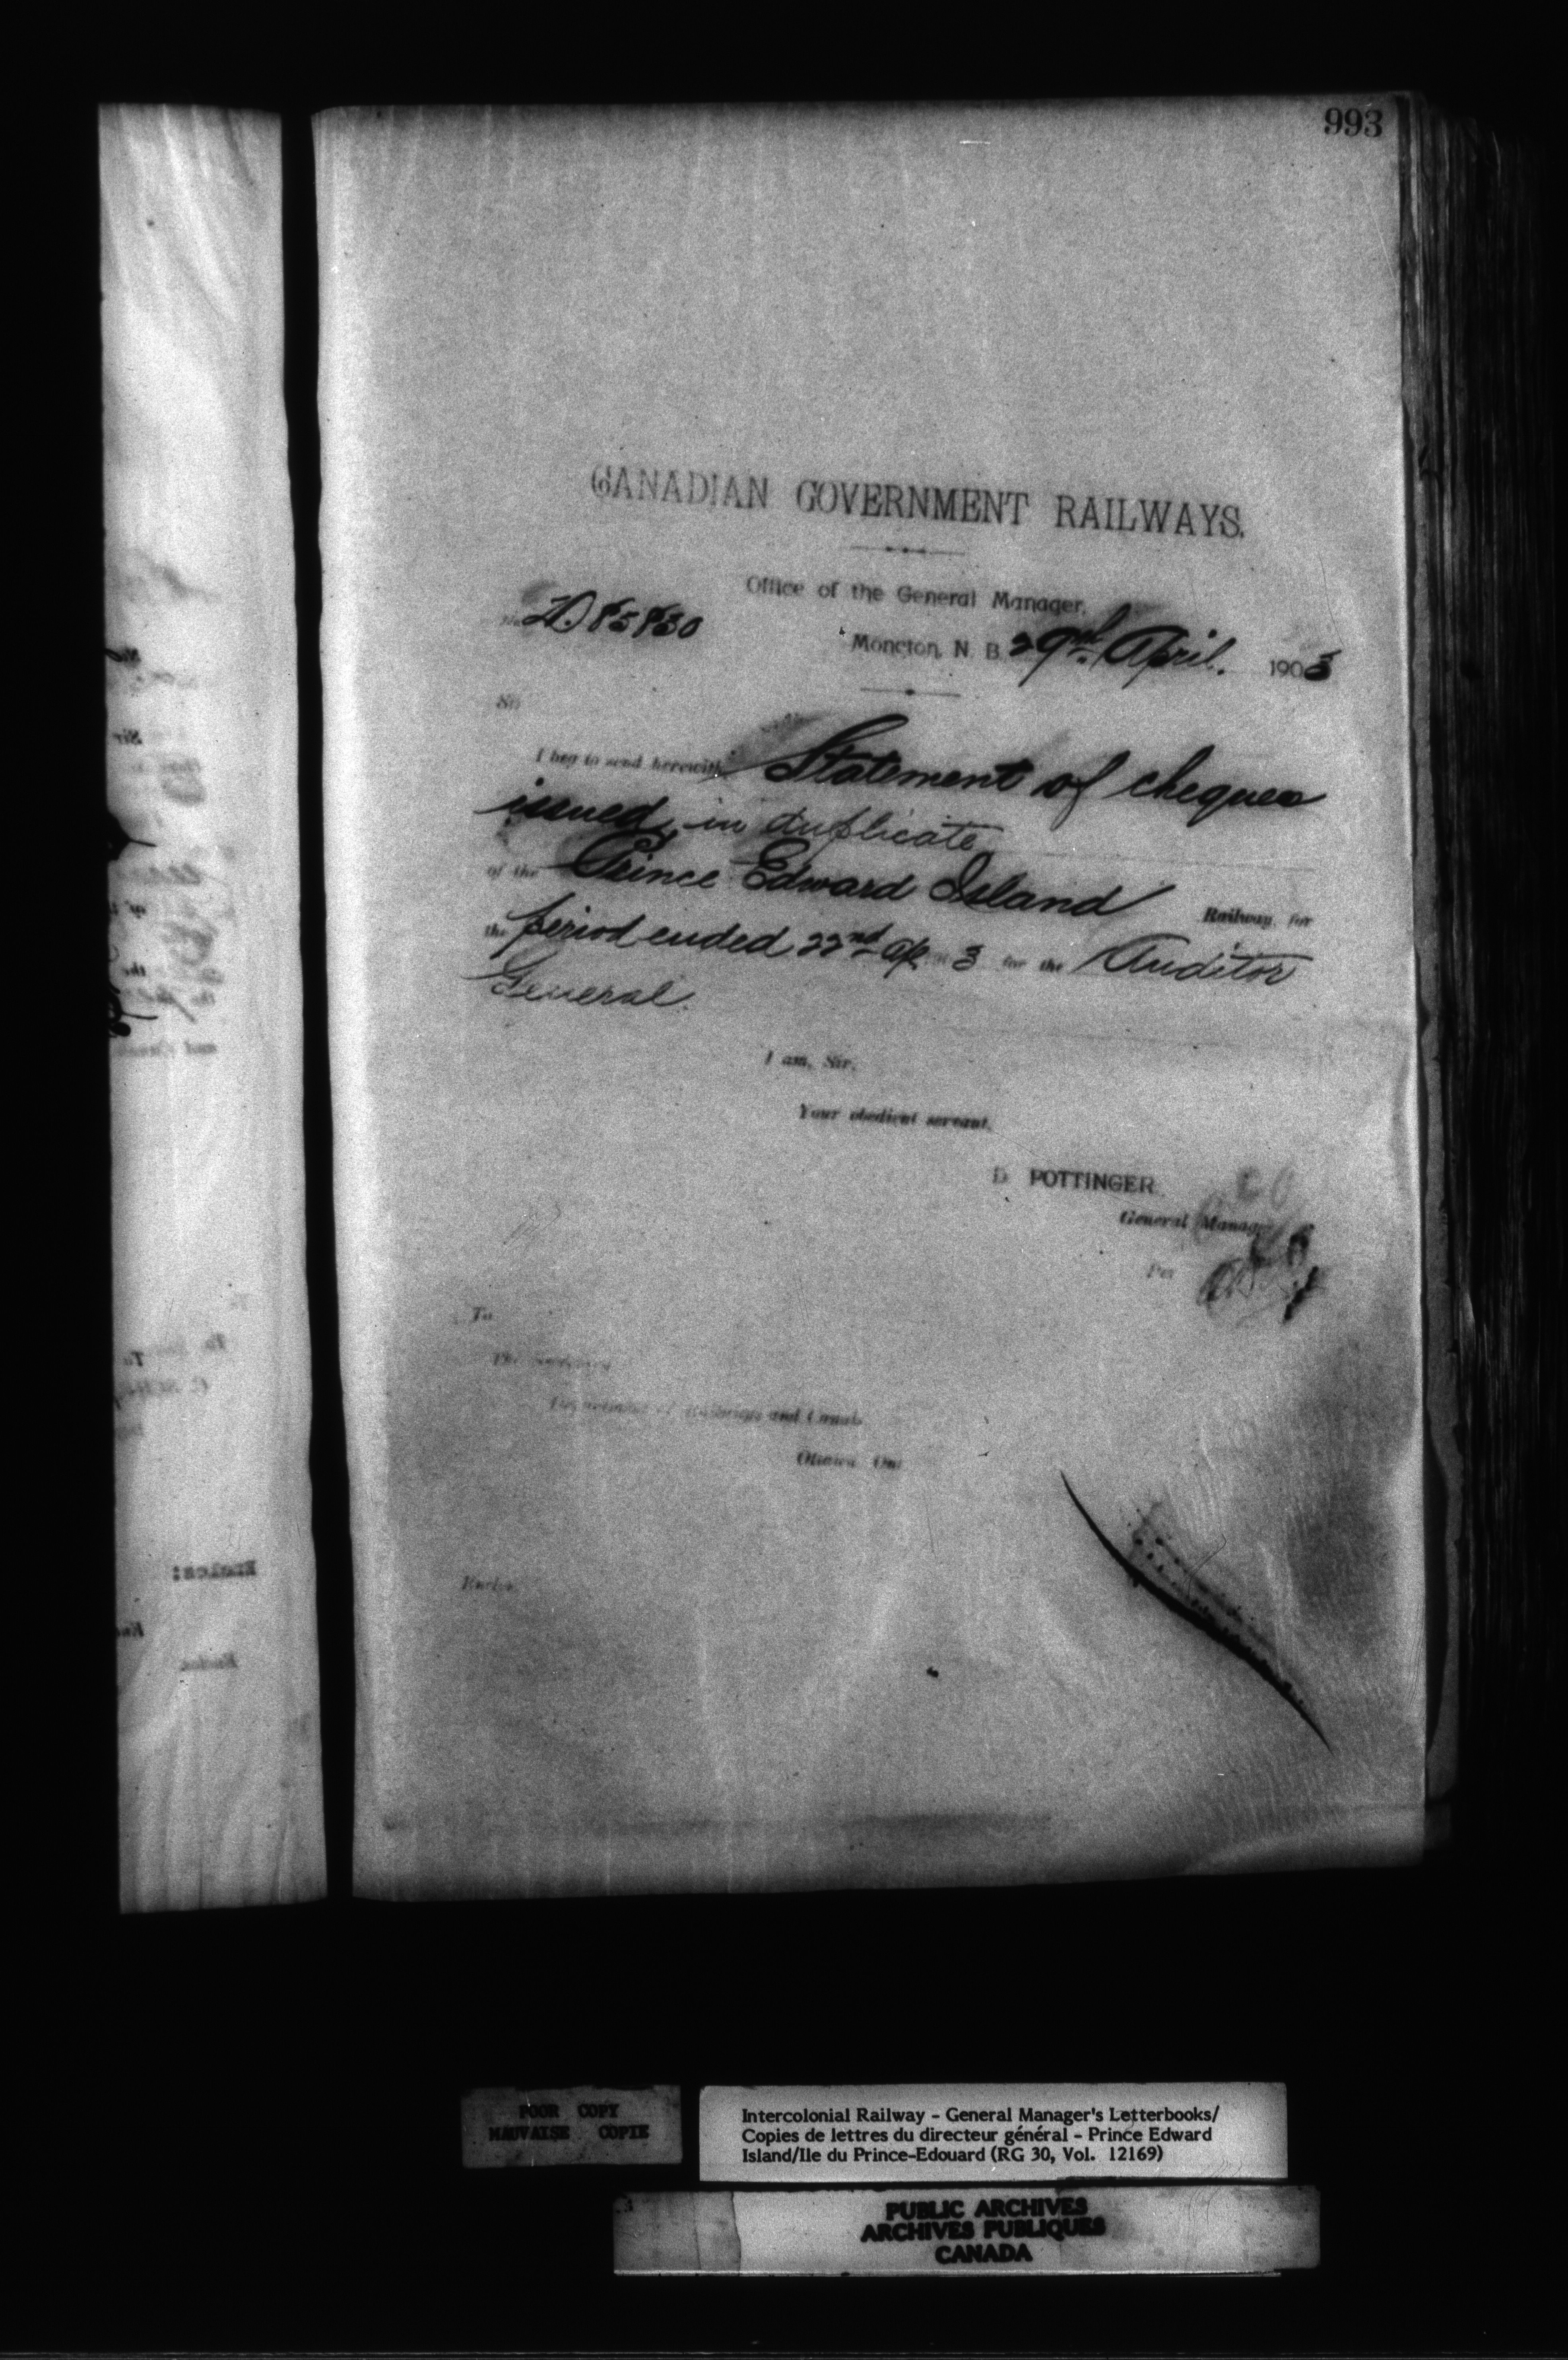 993
CANADIAN GOVERNMENT RAILWAYS.
Office of the General Manager,
85830
Moncton, N. B. 29 April. 1903
Sir
I beg to send herewith Statement of cheques
issued, in duplicate
of the Prince Edward Island Railway, for
the period ended 22nd Ap 3 for the Auditor
General.
I am, Sir,
Your obedient servant,
D. POTTINGER
General Manager
Per
To
The
Department of Railways and Canals
Ottawa Ont
Enclos
POOR COPY
MAUVAISE COPIE
Intercolonial Railway - General Manager's Letterbooks/
Copies de lettres du directeur général - Prince Edward
Island/Ile du Prince-Edouard (RG 30, Vol. 12169)
PUBLIC ARCHIVES
ARCHIVES PUBLIQUES
CANADA